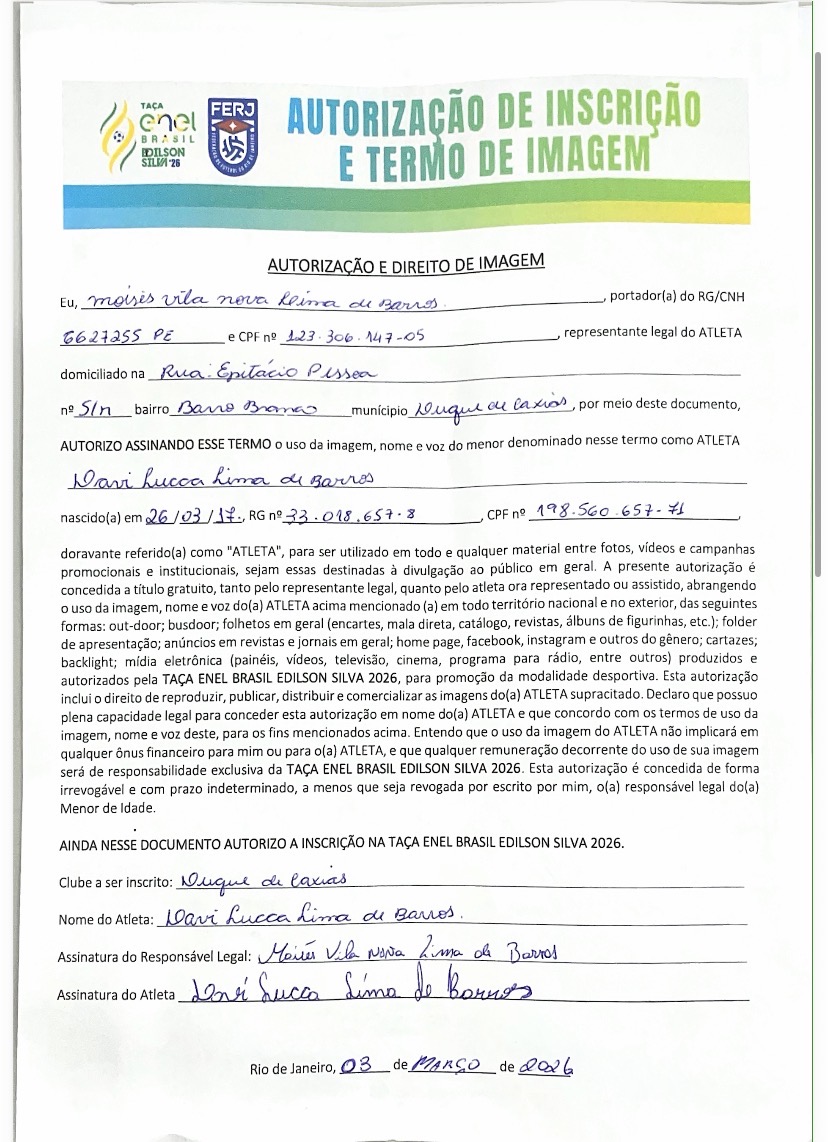 TAÇA
enel
BRASIL
EDILSON
SILVA '26
FERJ
FEDERAÇÃO DE FUTEBOL DO RIO DE JANEIRO
AUTORIZAÇÃO DE INSCRIÇÃO
E TERMO DE IMAGEM
AUTORIZAÇÃO E DIREITO DE IMAGEM
Eu, moisés vila nova Lima de Barros, portador(a) do RG/CNH
6627255 PE e CPF nº 123.306.147-05, representante legal do ATLETA
domiciliado na Rua: Epitácio Pessoa
nº S/n bairro Barro Branco município Duque de Caxias, por meio deste documento,
AUTORIZO ASSINANDO ESSE TERMO o uso da imagem, nome e voz do menor denominado nesse termo como ATLETA
Davi Lucca Lima de Barros
nascido(a) em 26/03/17, RG nº 33.018.657-8, CPF nº 198.560.657-71,
doravante referido(a) como "ATLETA", para ser utilizado em todo e qualquer material entre fotos, vídeos e campanhas
promocionais e institucionais, sejam essas destinadas à divulgação ao público em geral. A presente autorização é
concedida a título gratuito, tanto pelo representante legal, quanto pelo atleta ora representado ou assistido, abrangendo
o uso da imagem, nome e voz do(a) ATLETA acima mencionado (a) em todo território nacional e no exterior, das seguintes
formas: out-door; busdoor; folhetos em geral (encartes, mala direta, catálogo, revistas, álbuns de figurinhas, etc.); folder
de apresentação; anúncios em revistas e jornais em geral; home page, facebook, instagram e outros do gênero; cartazes;
backlight; mídia eletrônica (painéis, vídeos, televisão, cinema, programa para rádio, entre outros) produzidos e
autorizados pela TAÇA ENEL BRASIL EDILSON SILVA 2026, para promoção da modalidade desportiva. Esta autorização
inclui o direito de reproduzir, publicar, distribuir e comercializar as imagens do(a) ATLETA supracitado. Declaro que possuo
plena capacidade legal para conceder esta autorização em nome do(a) ATLETA e que concordo com os termos de uso da
imagem, nome e voz deste, para os fins mencionados acima. Entendo que o uso da imagem do ATLETA não implicará em
qualquer ônus financeiro para mim ou para o(a) ATLETA, e que qualquer remuneração decorrente do uso de sua imagem
será de responsabilidade exclusiva da TAÇA ENEL BRASIL EDILSON SILVA 2026. Esta autorização é concedida de forma
irrevogável e com prazo indeterminado, a menos que seja revogada por escrito por mim, o(a) responsável legal do(a)
Menor de Idade.
AINDA NESSE DOCUMENTO AUTORIZO A INSCRIÇÃO NA TAÇA ENEL BRASIL EDILSON SILVA 2026.
Clube a ser inscrito: Duque de Caxias
Nome do Atleta: Davi Lucca Lima de Barros.
Assinatura do Responsável Legal: Moisés Vila Nova Lima de Barros
Assinatura do Atleta Davi Lucca Lima de Barros
Rio de Janeiro, 03 de MARÇO de 2026